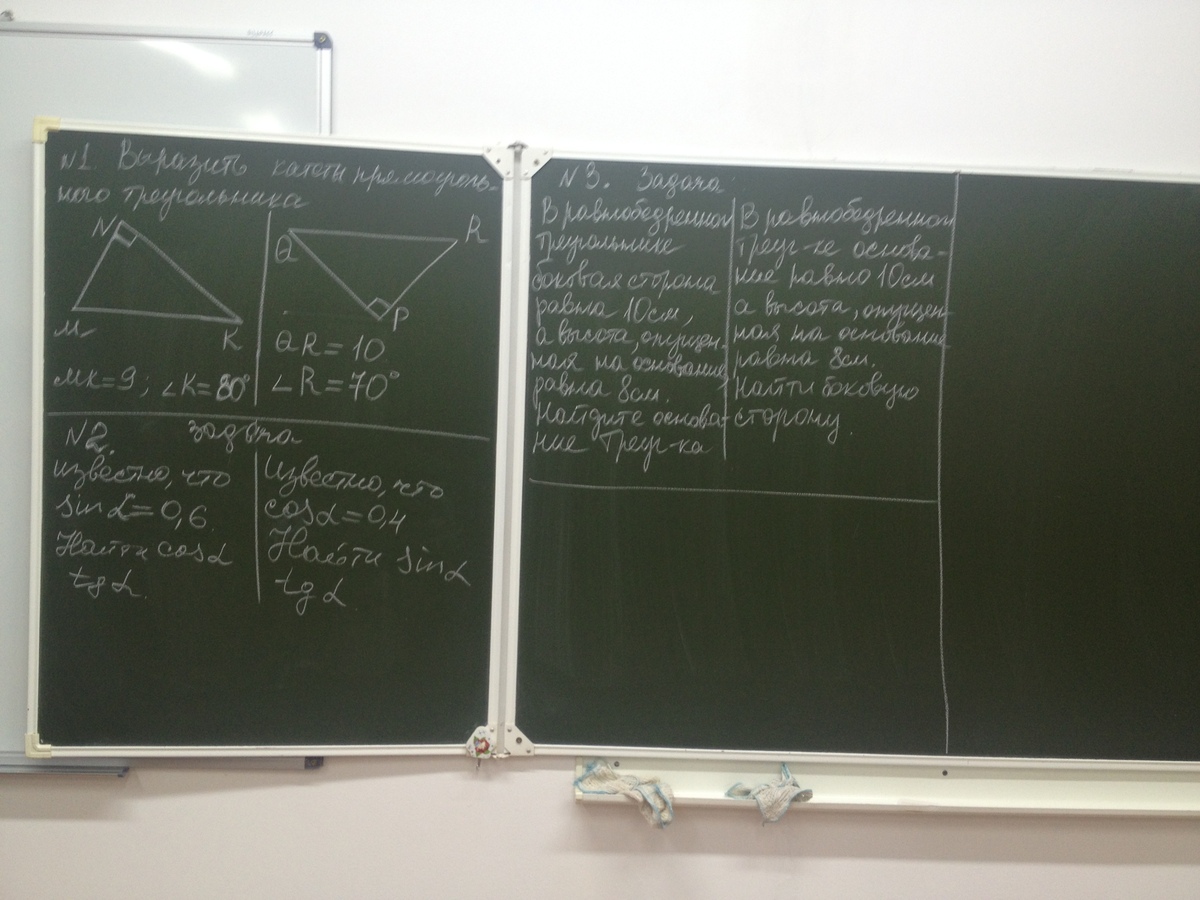 N1. Выразить катеты прямоуголь-
ного треугольника
N
M
K
MK=9; ∠K=80°
Q
R
P
QR=10
∠R=70°
N2. задача
известно, что
sin α=0,6.
Найти cos α
tg α.
Известно, что
cos α=0,4
Найти sin α
tg α
N3. Задача
В равнобедренном
треугольнике
боковая сторона
равна 10см,
а высота, опущен-
ная на основание,
равна 8см.
Найдите основа-
ние треуг-ка
В равнобедренном
треуг-ке основа-
ние равно 10см
а высота, опущен-
ная на основание
равна 8см.
Найти боковую
сторону.